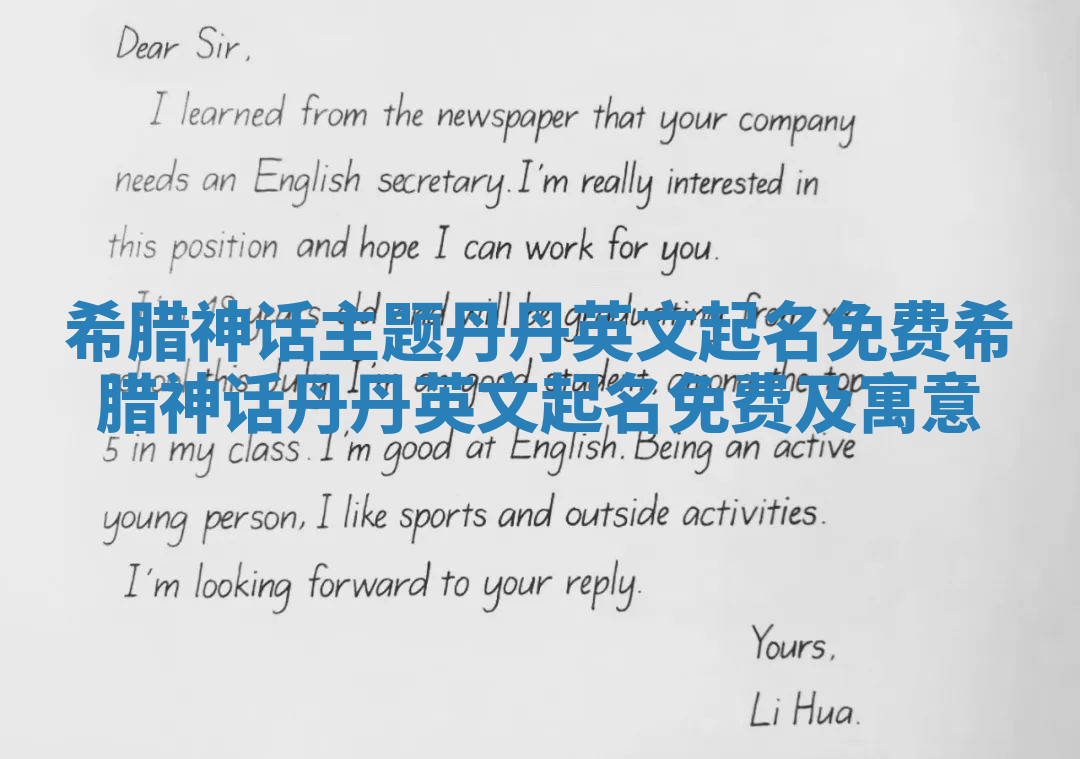 Dear Sir,
I learned from the newspaper that your company
needs an English secretary. I'm really interested in
this position and hope I can work for you.
I'm 18 years old and will be graduating from xx
希腊神话主题丹丹英文起名免费希
school this July. I'm an good student, among the top
腊神话丹丹英文起名免费及寓意
5 in my class. I'm good at English. Being an active
young person, I like sports and outside activities.
I'm looking forward to your reply.
Yours,
Li Hua.